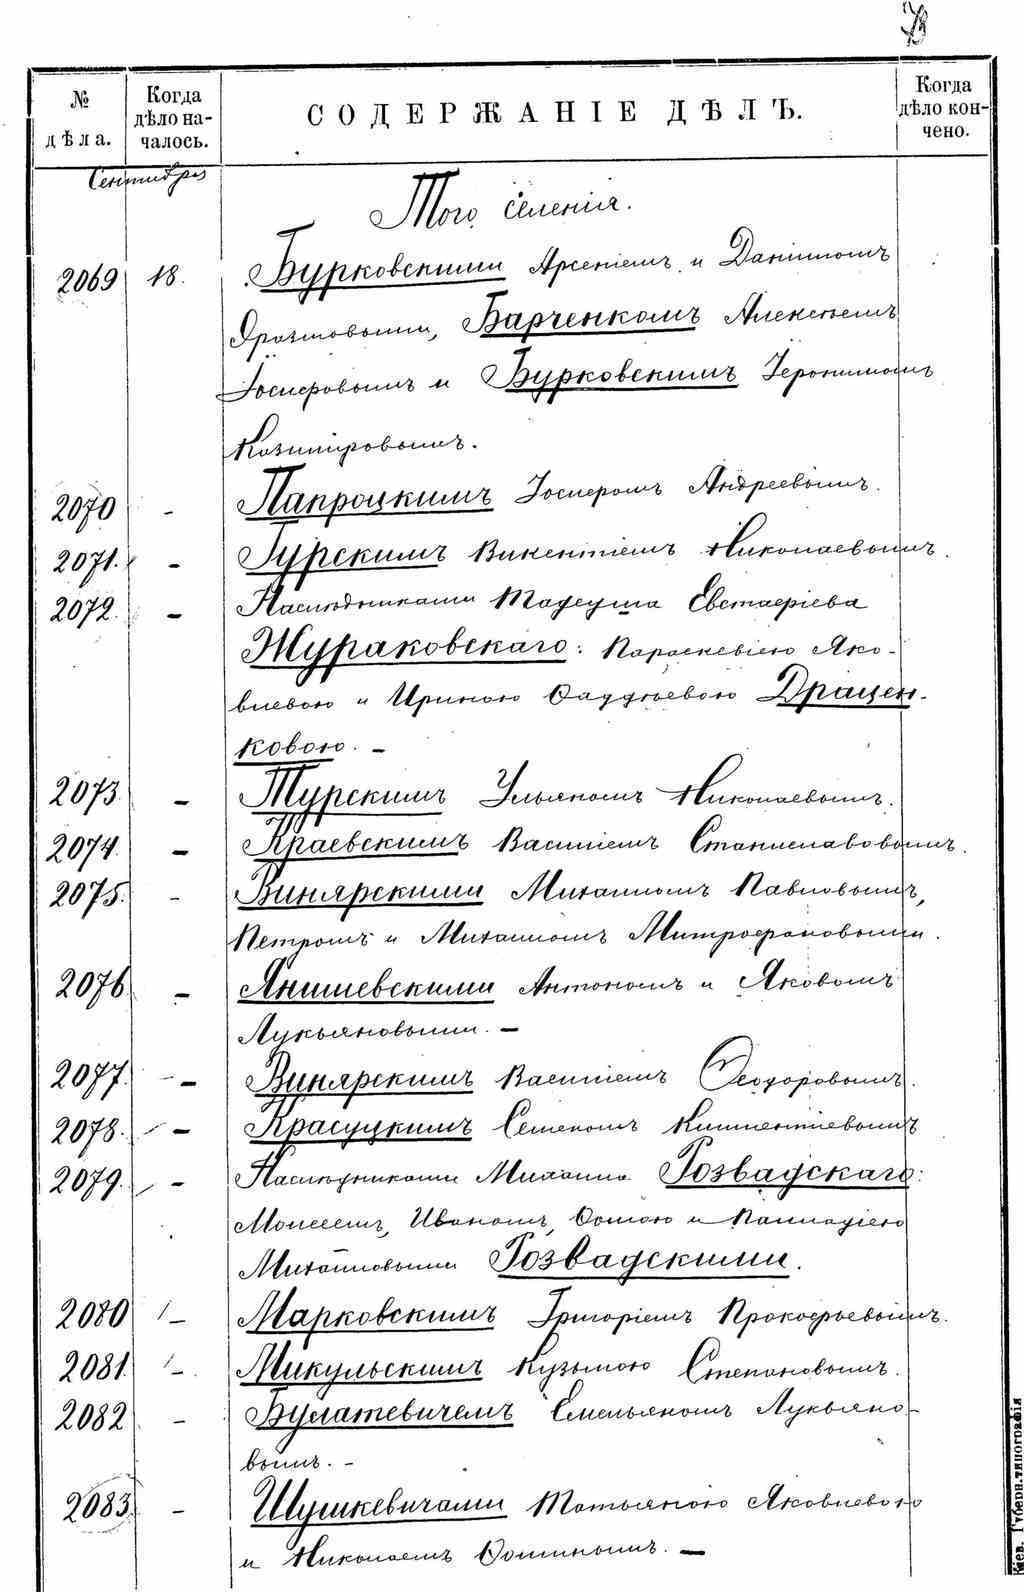 № дѣла. Когда дѣло началось. СОДЕРЖАНІЕ ДѢЛЪ. Когда дѣло кончено.
Сентября
Того селенія.
2069 18. Бурковскими Арсеніемъ и Даніиломъ
Барченкомъ Алексѣемъ
Іосифовымъ и Бурковскимъ Іеронимомъ
Казимировымъ.
2070 - Папроцкимъ Іосифомъ Андреевымъ.
2071. - Гурскимъ Викентіемъ Николаевымъ.
2072. - Наслѣдниками Тадеуша Евстафіева
Жураковскаго: Параскевіею Яко-
влевою и Ириною Фаддѣевою Драцен-
ковою. -
2073. - Турскимъ Ульяномъ Николаевымъ.
2074. - Краевскимъ Василіемъ Станиславовымъ.
2075. - Винярскими Михаиломъ Павловымъ,
Петромъ и Михаиломъ Митрофановыми.
2076. - Янишевскими Антономъ и Яковомъ
Лукьяновыми. -
2077. - Винярскимъ Василіемъ Ѳеодоровымъ.
2078. - Красуцкимъ Семеномъ Климентіевымъ
2079. - Наслѣдниками Михаила Розвадскаго:
Моисеемъ, Иваномъ, Фомою и Палладіею
Михайловыми Розвадскими.
2080 - Марковскимъ Григоріемъ Прокофьевымъ.
2081. - Микульскимъ Кузьмою Степановымъ.
2082 - Булатевичемъ Емельяномъ Лукьяно-
вымъ. -
2083. - Шушкевичами Татьяною Яковлевою
и Николаемъ Фоминымъ. -
Кіев. Губерн. типографія